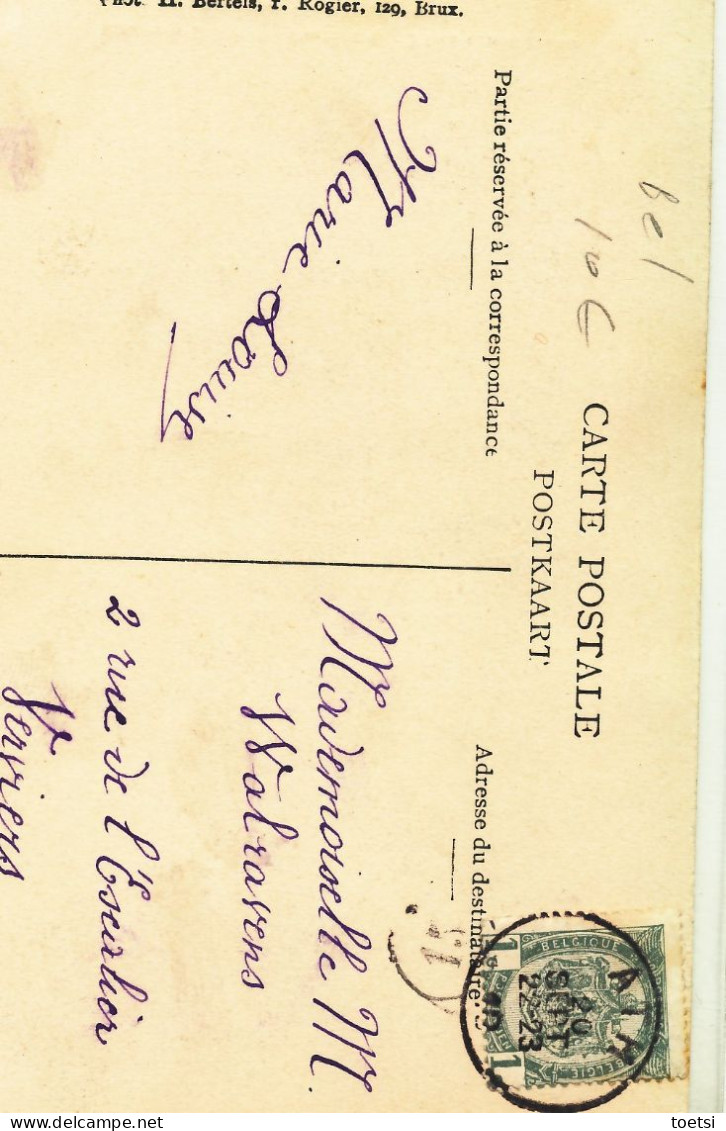 bel
10€
CARTE POSTALE
POSTKAART
Partie réservée à la correspondance
Adresse du destinataire
Marie Louise
Mademoiselle M.
Walravens
2 rue de l'Escalier
Verviers
H. Bertels, r. Rogier, 129, Brux.
BELGIQUE
1
1
20
SEPT
22-23
toetsi